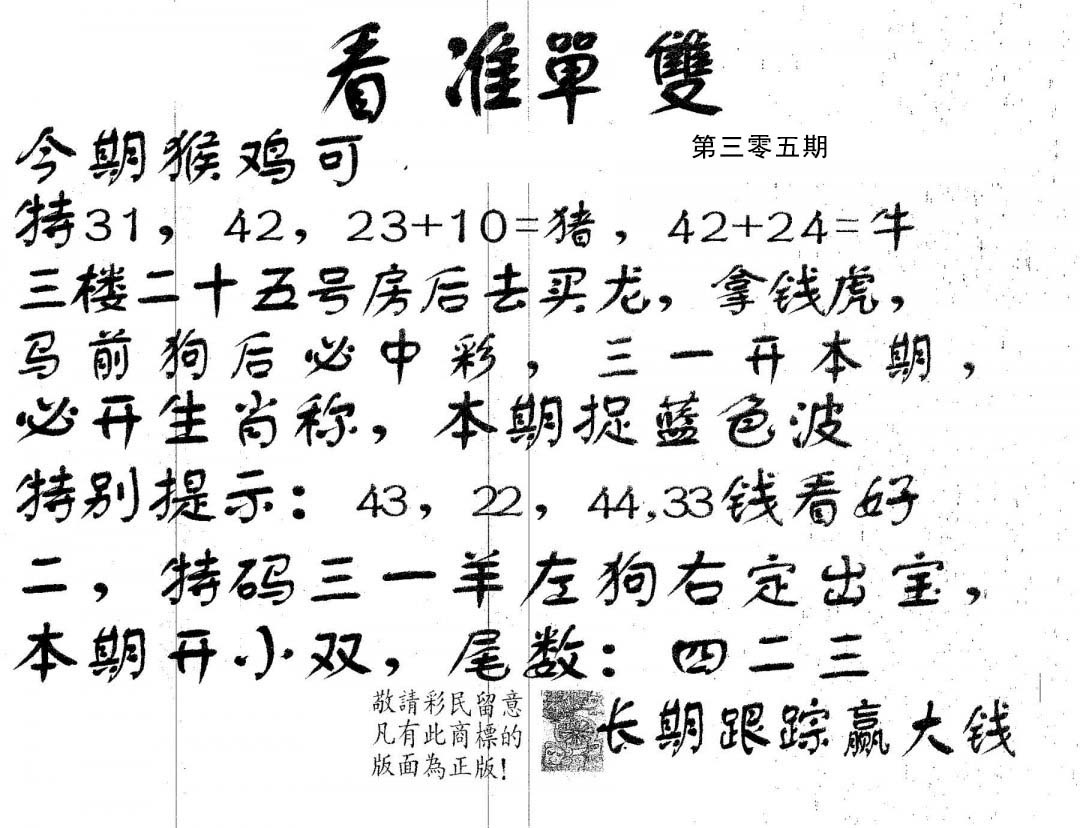 看准單雙
第三零五期
今期猴鸡可
特31，42，23+10=猪，42+24=牛
三楼二十五号房后去买龙，拿钱虎，
马前狗后必中彩，三一开本期，
必开生肖称，本期捉蓝色波
特别提示：43，22，44,33钱看好
二，特码三一羊左狗右定出宝，
本期开小双，尾数：四二三
敬請彩民留意
凡有此商標的
版面為正版！
长期跟踪赢大钱